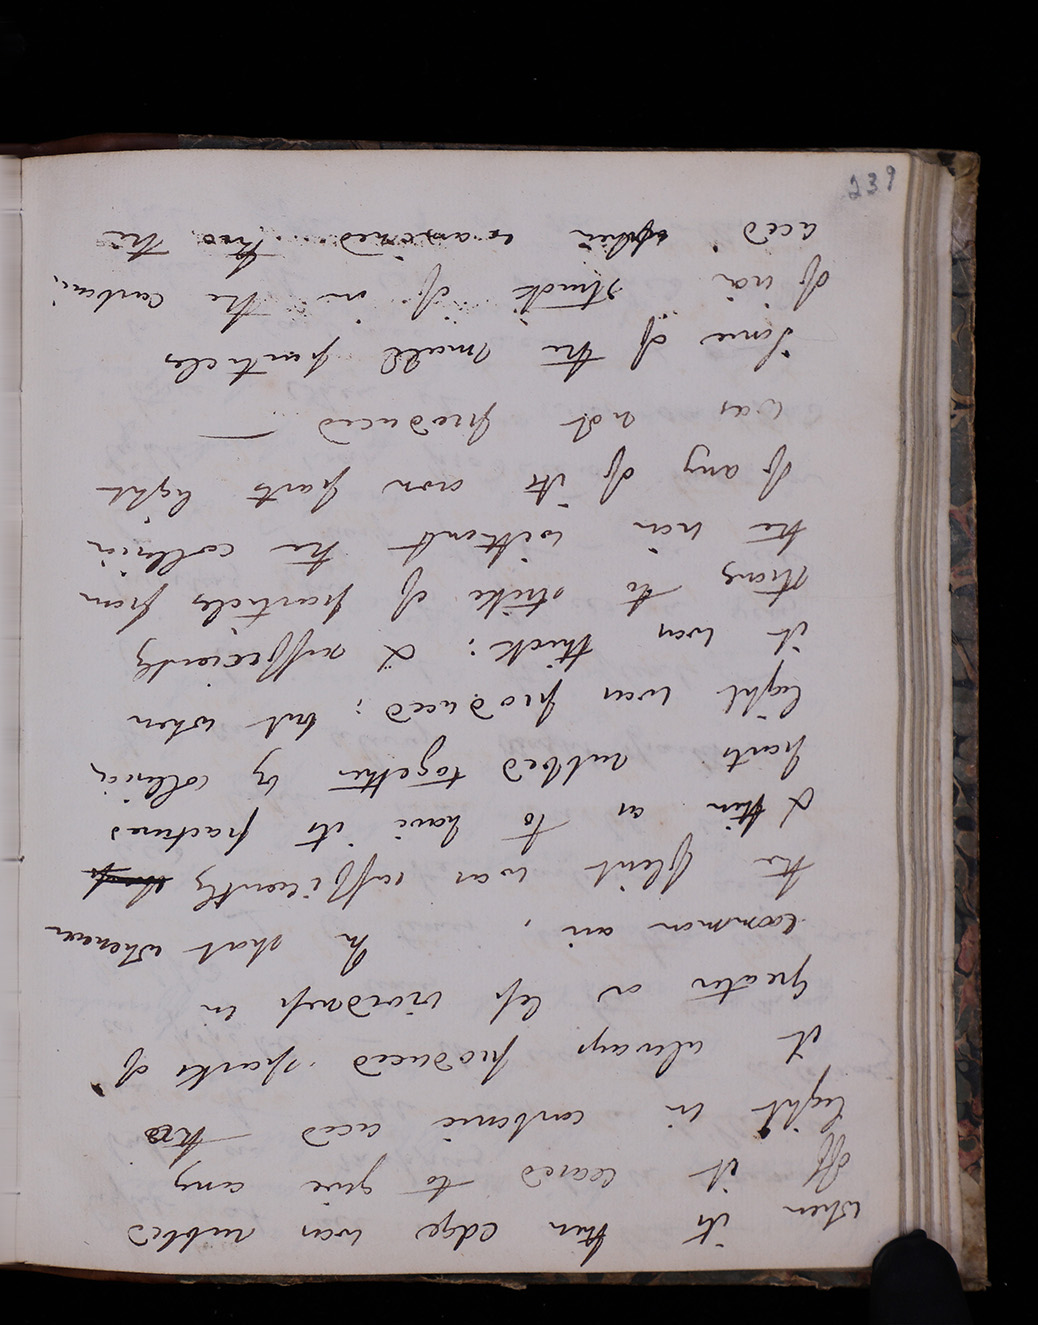 239
when its thin edge was rubbed
off it ceased to give any
light in carbonic acid tho
it always produced sparks of
greater or less vividness in
common air, In short whenever
the flint was sufficiently
& thin as to have its fractured
parts rubbed together by collision,
light was produced; but when
it was thick: & sufficiently
strong to strike of particles from
the iron without the collision
of any of its own parts light
was not produced —
Some of the small particles
of iron struck of in the carbonic
acid when examined tho the